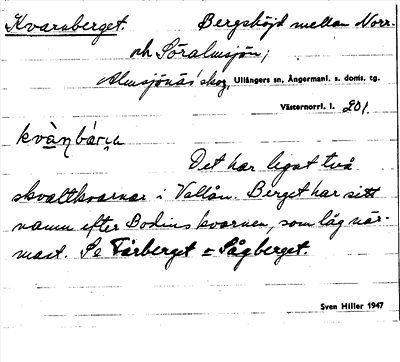 Kvarnberget. Bergshöjd mellan Norr-
och Söralmsjön;
Almsjönäs' skog, Ullångers sn, Ångermanl. s. doms. tg.
Västernorrl. l. 201.
Det har legat två
skvaltkvarnar i Vallån. Berget har sitt
namn efter Bodins kvarnen, som låg när-
mast. Se Fårberget = Sågberget.
Sven Hiller 1947